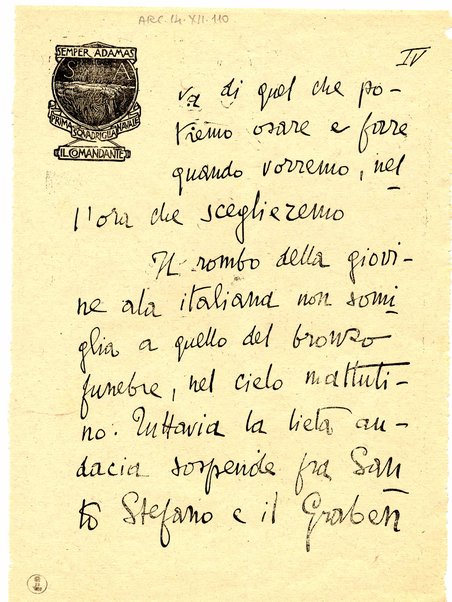 ARC. 14. XII. 110
SEMPER ADAMAS
S A
PRIMA SQUADRIGLIA NAVALE
IL COMANDANTE
IV
va di quel che po-
tremo osare e fare
quando vorremo, nel
l'ora che sceglieremo
Il rombo della giovi-
ne ala italiana non somi
glia a quello del bronzo
funebre, nel cielo mattuti-
no. Tuttavia la lieta au-
dacia sospende fra San
to Stefano e il Graben